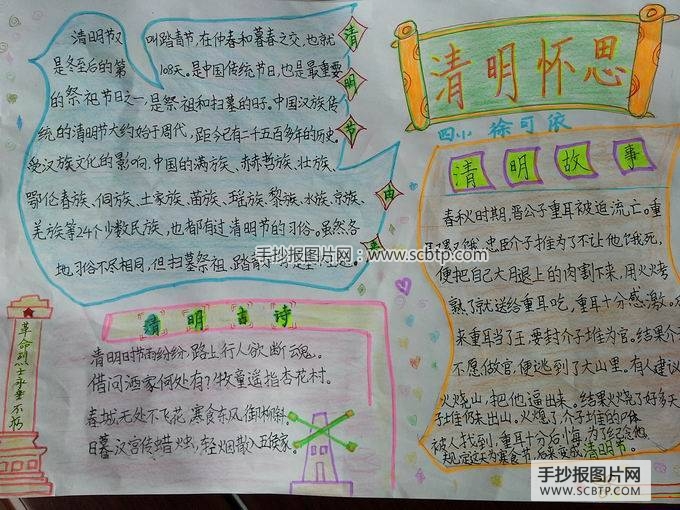 清明节由
清明节又叫踏青节,在仲春和暮春之交,也就
是冬至后的第108天,是中国传统节日,也是最重要
的祭祖节日之一,是祭祖和扫墓的日子。中国汉族传
统的清明节大约始于周代,距今已有二千五百多年的历史。
受汉族文化的影响,中国的满族、赫哲族、壮族、
鄂伦春族、侗族、土家族、苗族、瑶族、黎族、水族、京族、
羌族等24个少数民族,也都有过清明节的习俗。虽然各
地习俗不尽相同,但扫墓祭祖、踏青
手抄报图片网:www.scbtp.com
清明怀思
四小 徐可依
清明故事
春秋时期,晋公子重耳被迫流亡。重
耳又饿,忠臣介子推为了不让他饿死,
便把自己大月退上的肉割下来,用火烤
熟了就送给重耳吃,重耳十分感激。
来重耳当了王要封介子推为官。结果介
不愿做官,便逃到了大山里。有人建议
火烧山,把他逼出来。结果火烧了好多天
子推仍未出山。火熄了,介子推的
被人找到,重耳十分后悔,为了纪念他
规定这天为寒食节,后来变成清明节。
清明古诗
清明时节雨纷纷,路上行人欲断魂。
借问酒家何处有?牧童遥指杏花村。
春城无处不飞花,寒食东风御柳斜。
日暮汉宫传蜡烛,轻烟散入五侯家。
革命烈士永垂不朽
手抄报图片网
WWW.SCBTP.COM